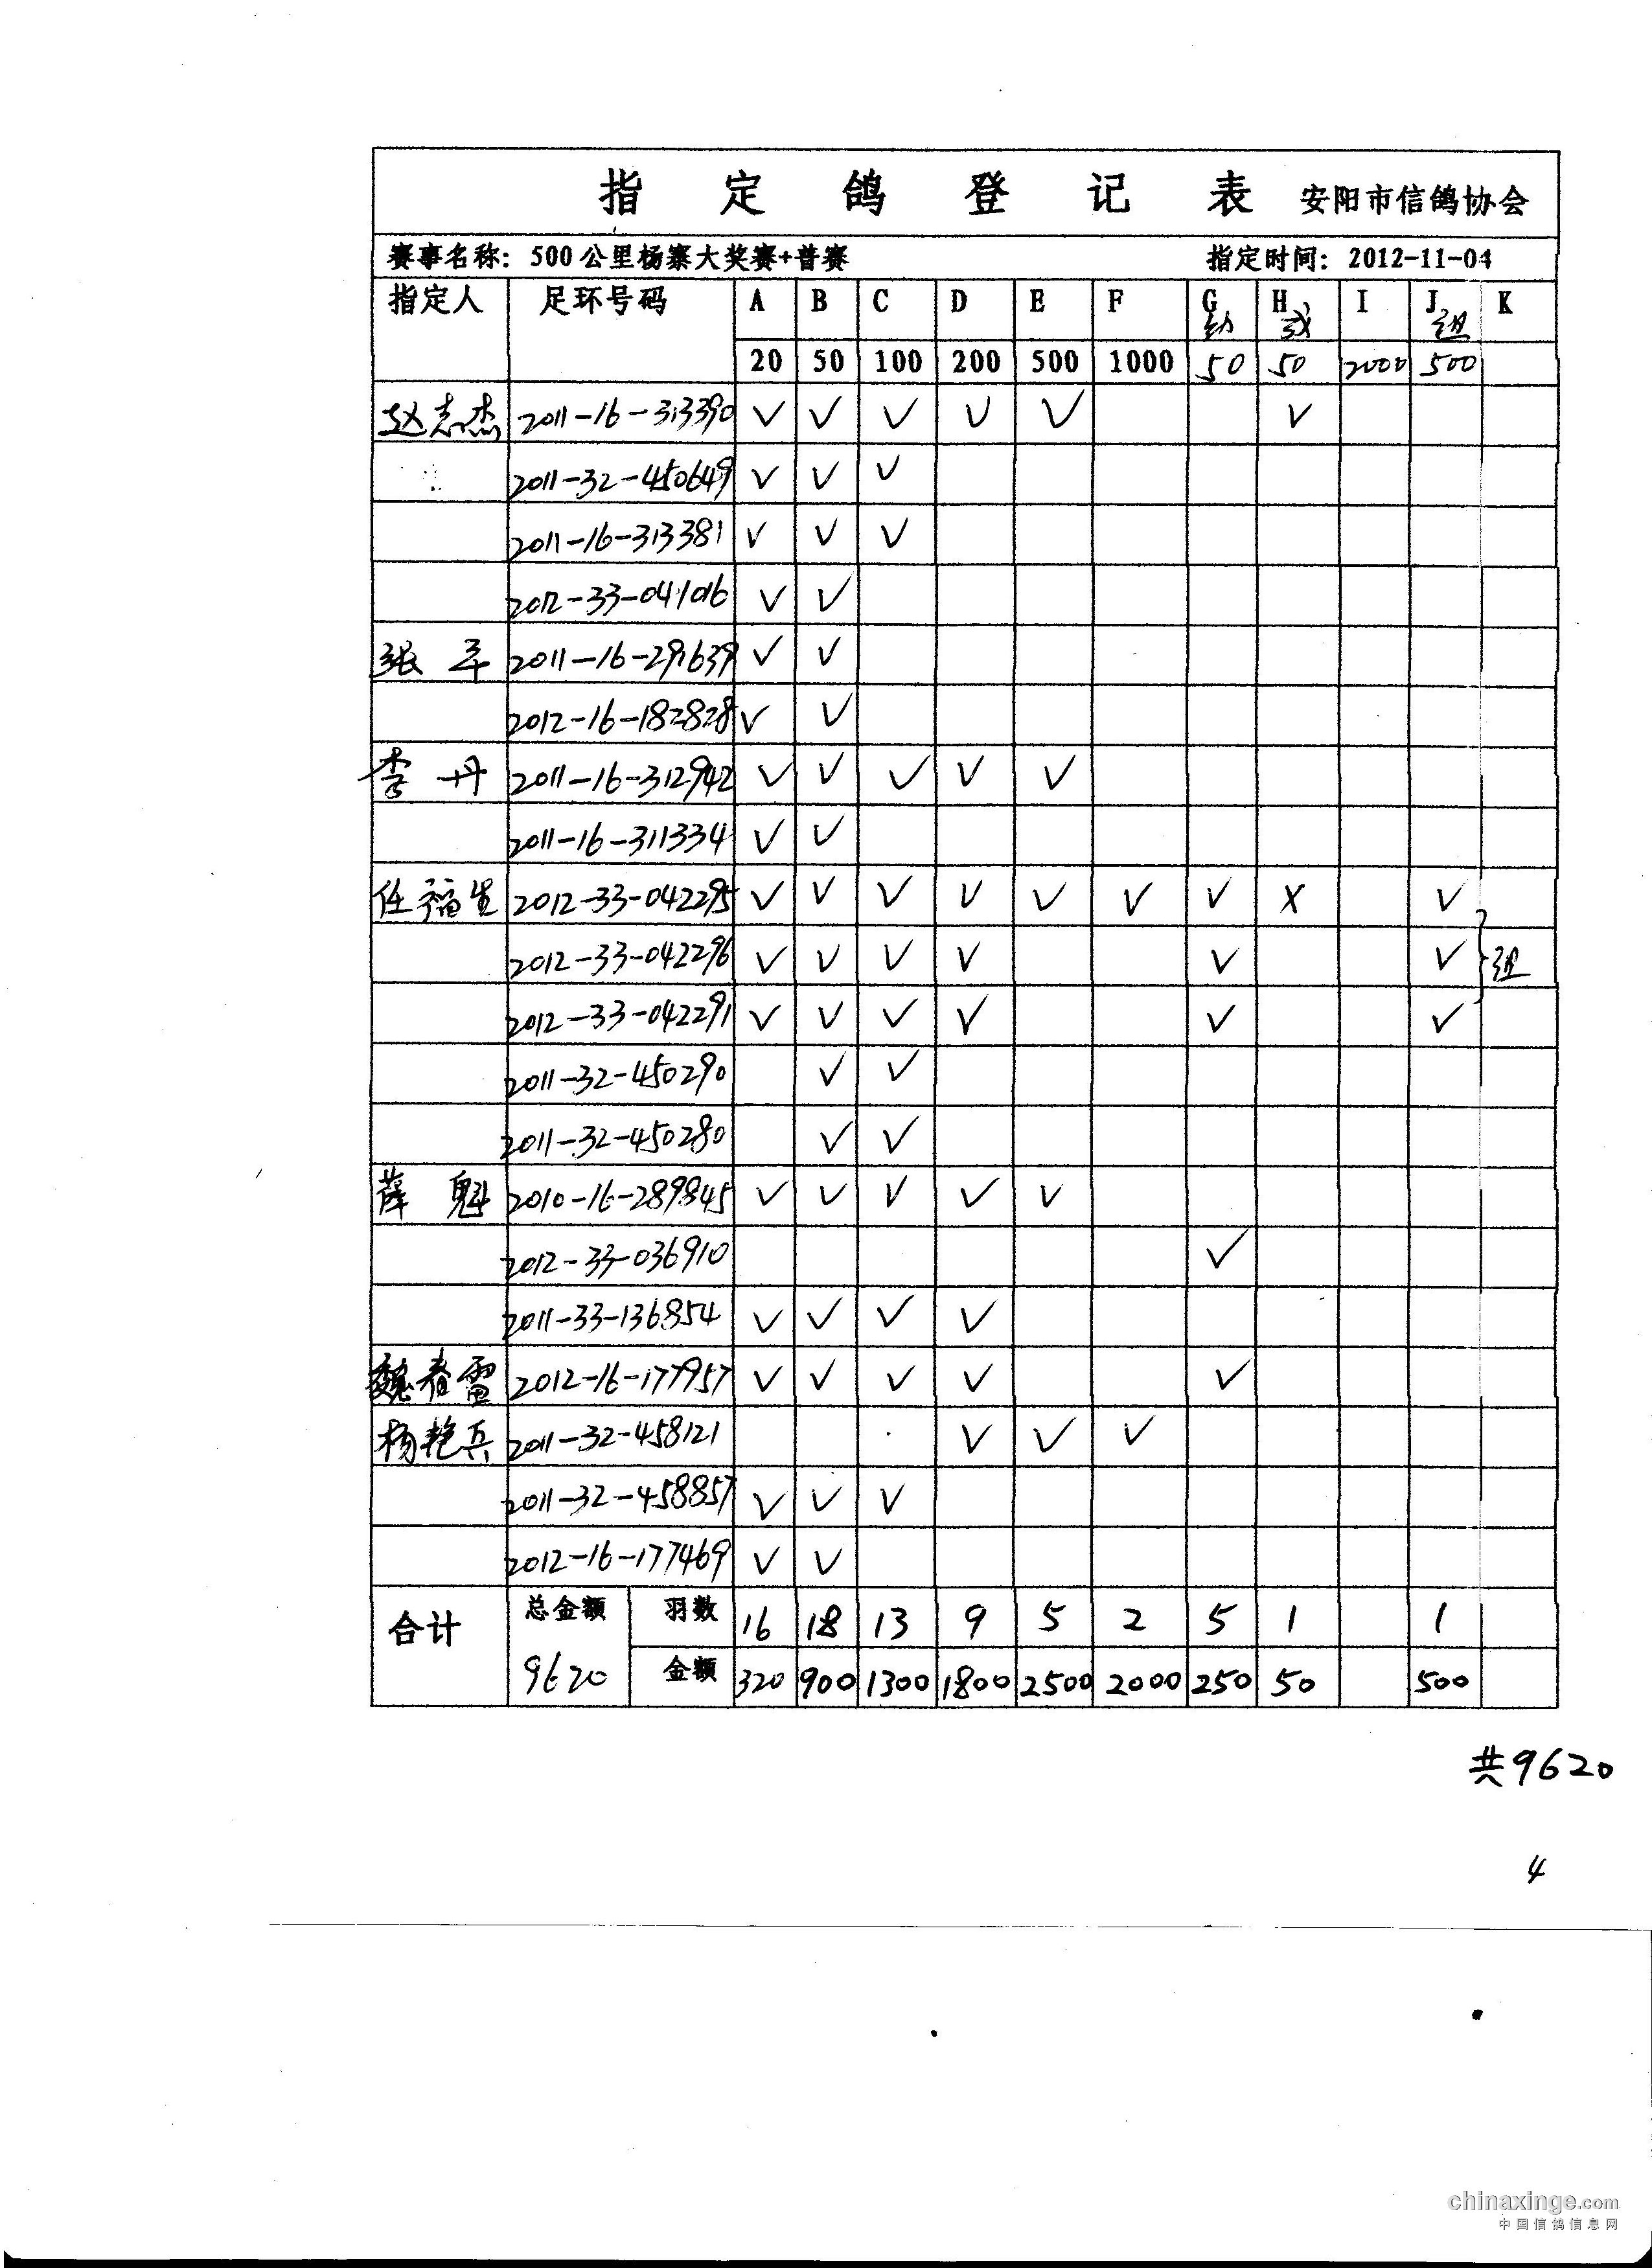 指 定 鸽 登 记 表 安阳市信鸽协会
赛事名称：500公里杨寨大奖赛+普赛 指定时间：2012-11-04
指定人 足环号码 A B C D E F G幼 H成 I J组 K
20 50 100 200 500 1000 50 50 2000 500
赵志杰 2011-16-313390 √ √ √ √ √ √
2011-32-450649 √ √ √
2011-16-313381 √ √ √
2012-33-041016 √ √
张平 2011-16-291639 √ √
2012-16-182828 √ √
李丹 2011-16-312942 √ √ √ √ √
2011-16-311334 √ √
任福贵 2012-33-042295 √ √ √ √ √ √ √ X √
2012-33-042296 √ √ √ √ √ √ }组
2012-33-042291 √ √ √ √ √ √
2011-32-450290 √ √
2011-32-450280 √ √
薛魁 2010-16-289845 √ √ √ √ √
2012-33-036910 √
2011-33-136854 √ √ √ √
魏春雷 2012-16-177957 √ √ √ √ √
杨艳兵 2011-32-458121 √ √ √
2011-32-458857 √ √ √
2012-16-177469 √ √
合计 总金额 羽数 16 18 13 9 5 2 5 1 1
9620 金额 320 900 1300 1800 2500 2000 250 50 500
共9620
4
chinaxinge.com
中国信鸽信息网